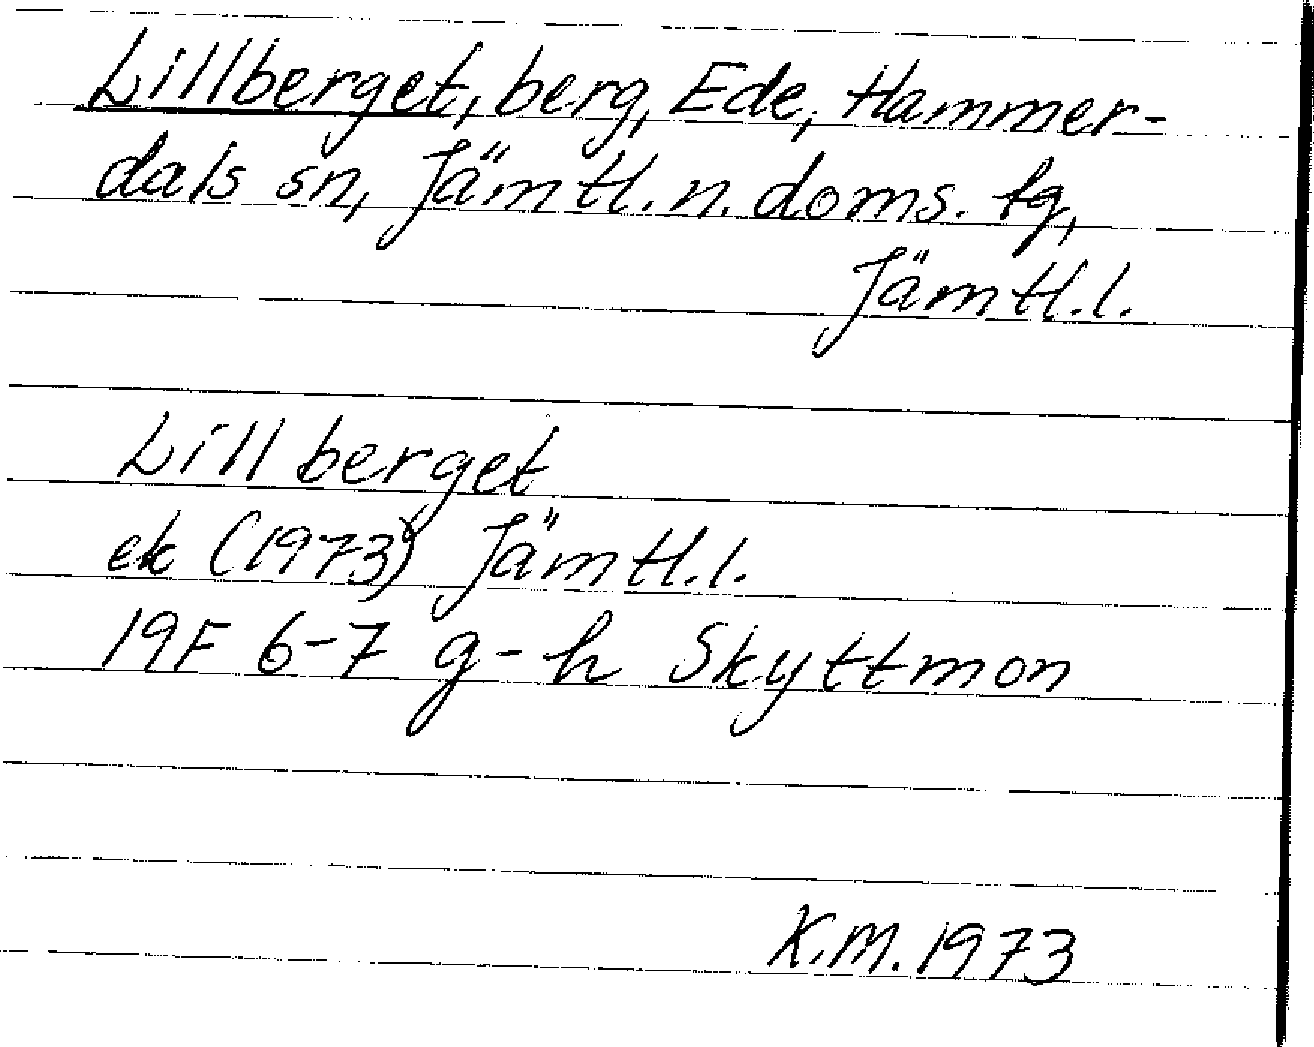 Lillberget, berg, Ede, Hammer-
dals sn, Jämtl. n. doms. fg,
Jämtl. l.
Lillberget
ek (1973) Jämtl. l.
19F 6-7 g-h Skyttmon
K.M. 1973